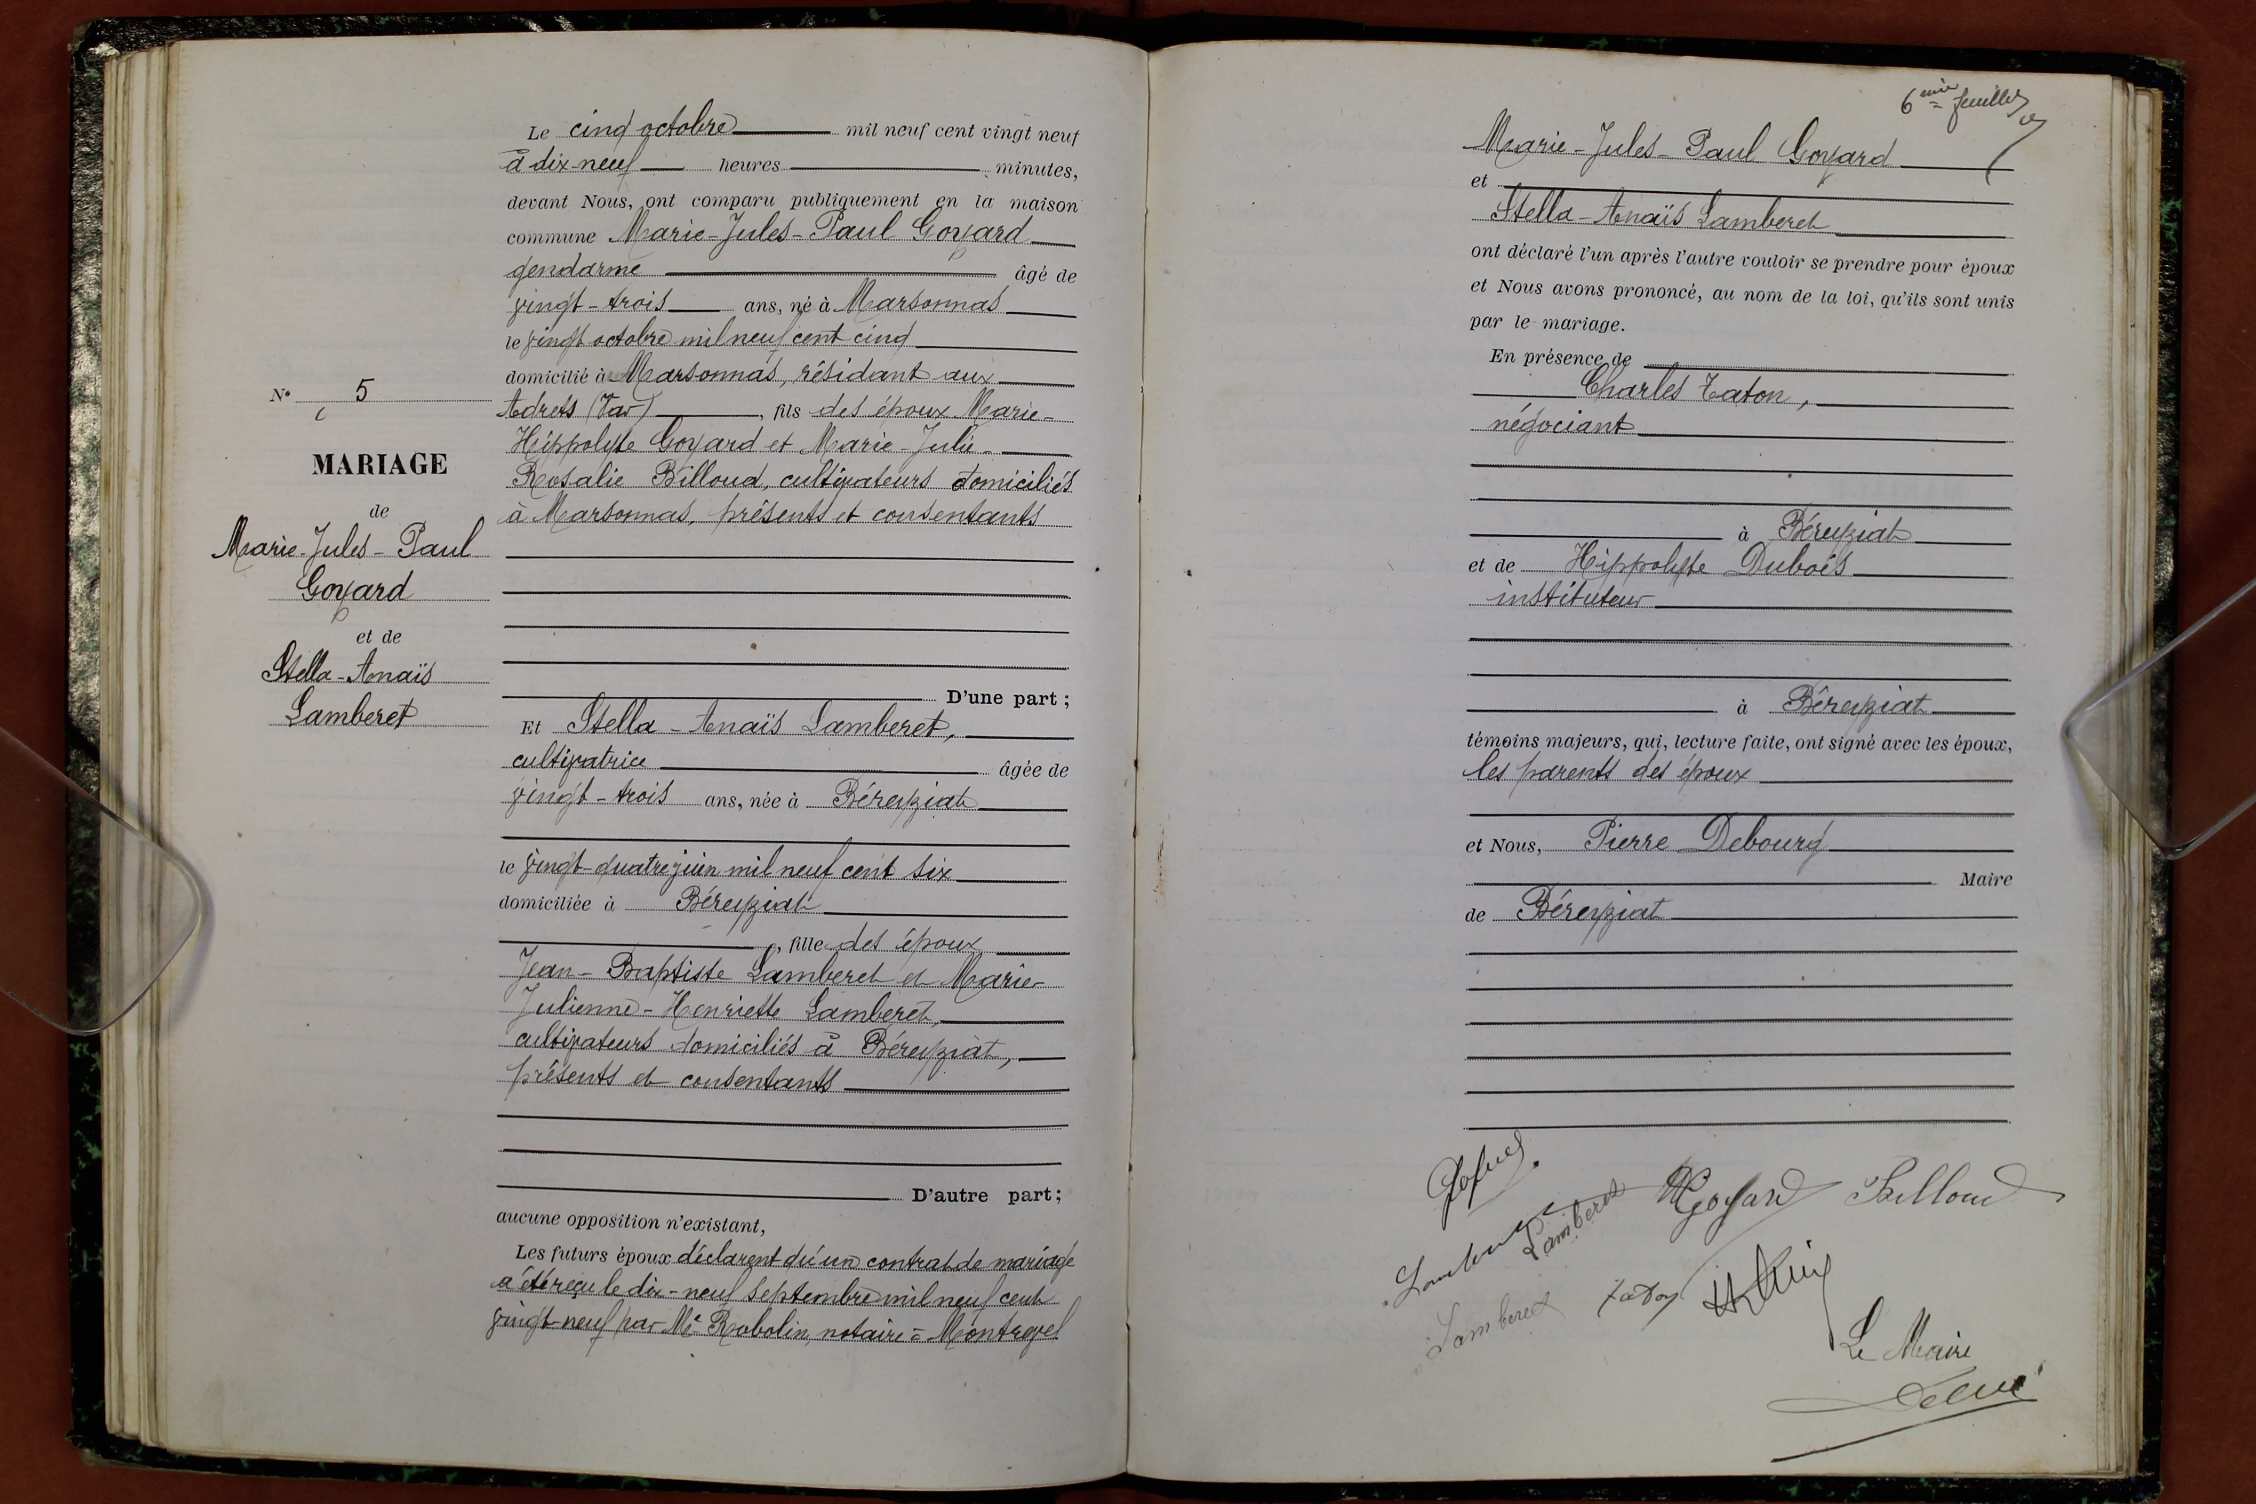 N° 5
MARIAGE
de
Marie-Jules-Paul
Goyard
et de
Stella-Anaïs
Lamberet
Le cinq octobre mil neuf cent vingt neuf
à dix-neuf heures minutes,
devant Nous, ont comparu publiquement en la maison
commune Marie-Jules-Paul Goyard
gendarme âgé de
vingt-trois ans, né à Marsonnas
le vingt octobre mil neuf cent cinq
domicilié à Marsonnas, résidant aux
Adrets (Var), fils des époux Marie-
Hippolyte Goyard et Marie-Julie-
Rosalie Billoud, cultivateurs domiciliés
à Marsonnas, présents et consentants
D'une part;
Et Stella-Anaïs Lamberet,
cultivatrice âgée de
vingt-trois ans, née à Béreyziat
le vingt-quatre juin mil neuf cent six
domiciliée à Béreyziat
, fille des époux
Jean-Baptiste Lamberet et Marie-
Julienne-Henriette Lamberet,
cultivateurs domiciliés à Béreyziat,
présents et consentants
D'autre part;
aucune opposition n'existant,
Les futurs époux déclarent qu'un contrat de mariage
a été reçu le dix-neuf septembre mil neuf cent
vingt-neuf par Me Robolin, notaire à Montrevel
6ème feuillet
Marie-Jules-Paul Goyard
et
Stella-Anaïs Lamberet
ont déclaré l'un après l'autre vouloir se prendre pour époux
et Nous avons prononcé, au nom de la loi, qu'ils sont unis
par le mariage.
En présence de
Charles Taton,
négociant
à Béreyziat
et de Hippolyte Dubois
instituteur
à Béreyziat
témoins majeurs, qui, lecture faite, ont signé avec les époux,
les parents des époux
et Nous, Pierre Debourg
Maire
de Béreyziat
Goyard Billoud
Lamberet
Lamberet
Taton
Le Maire